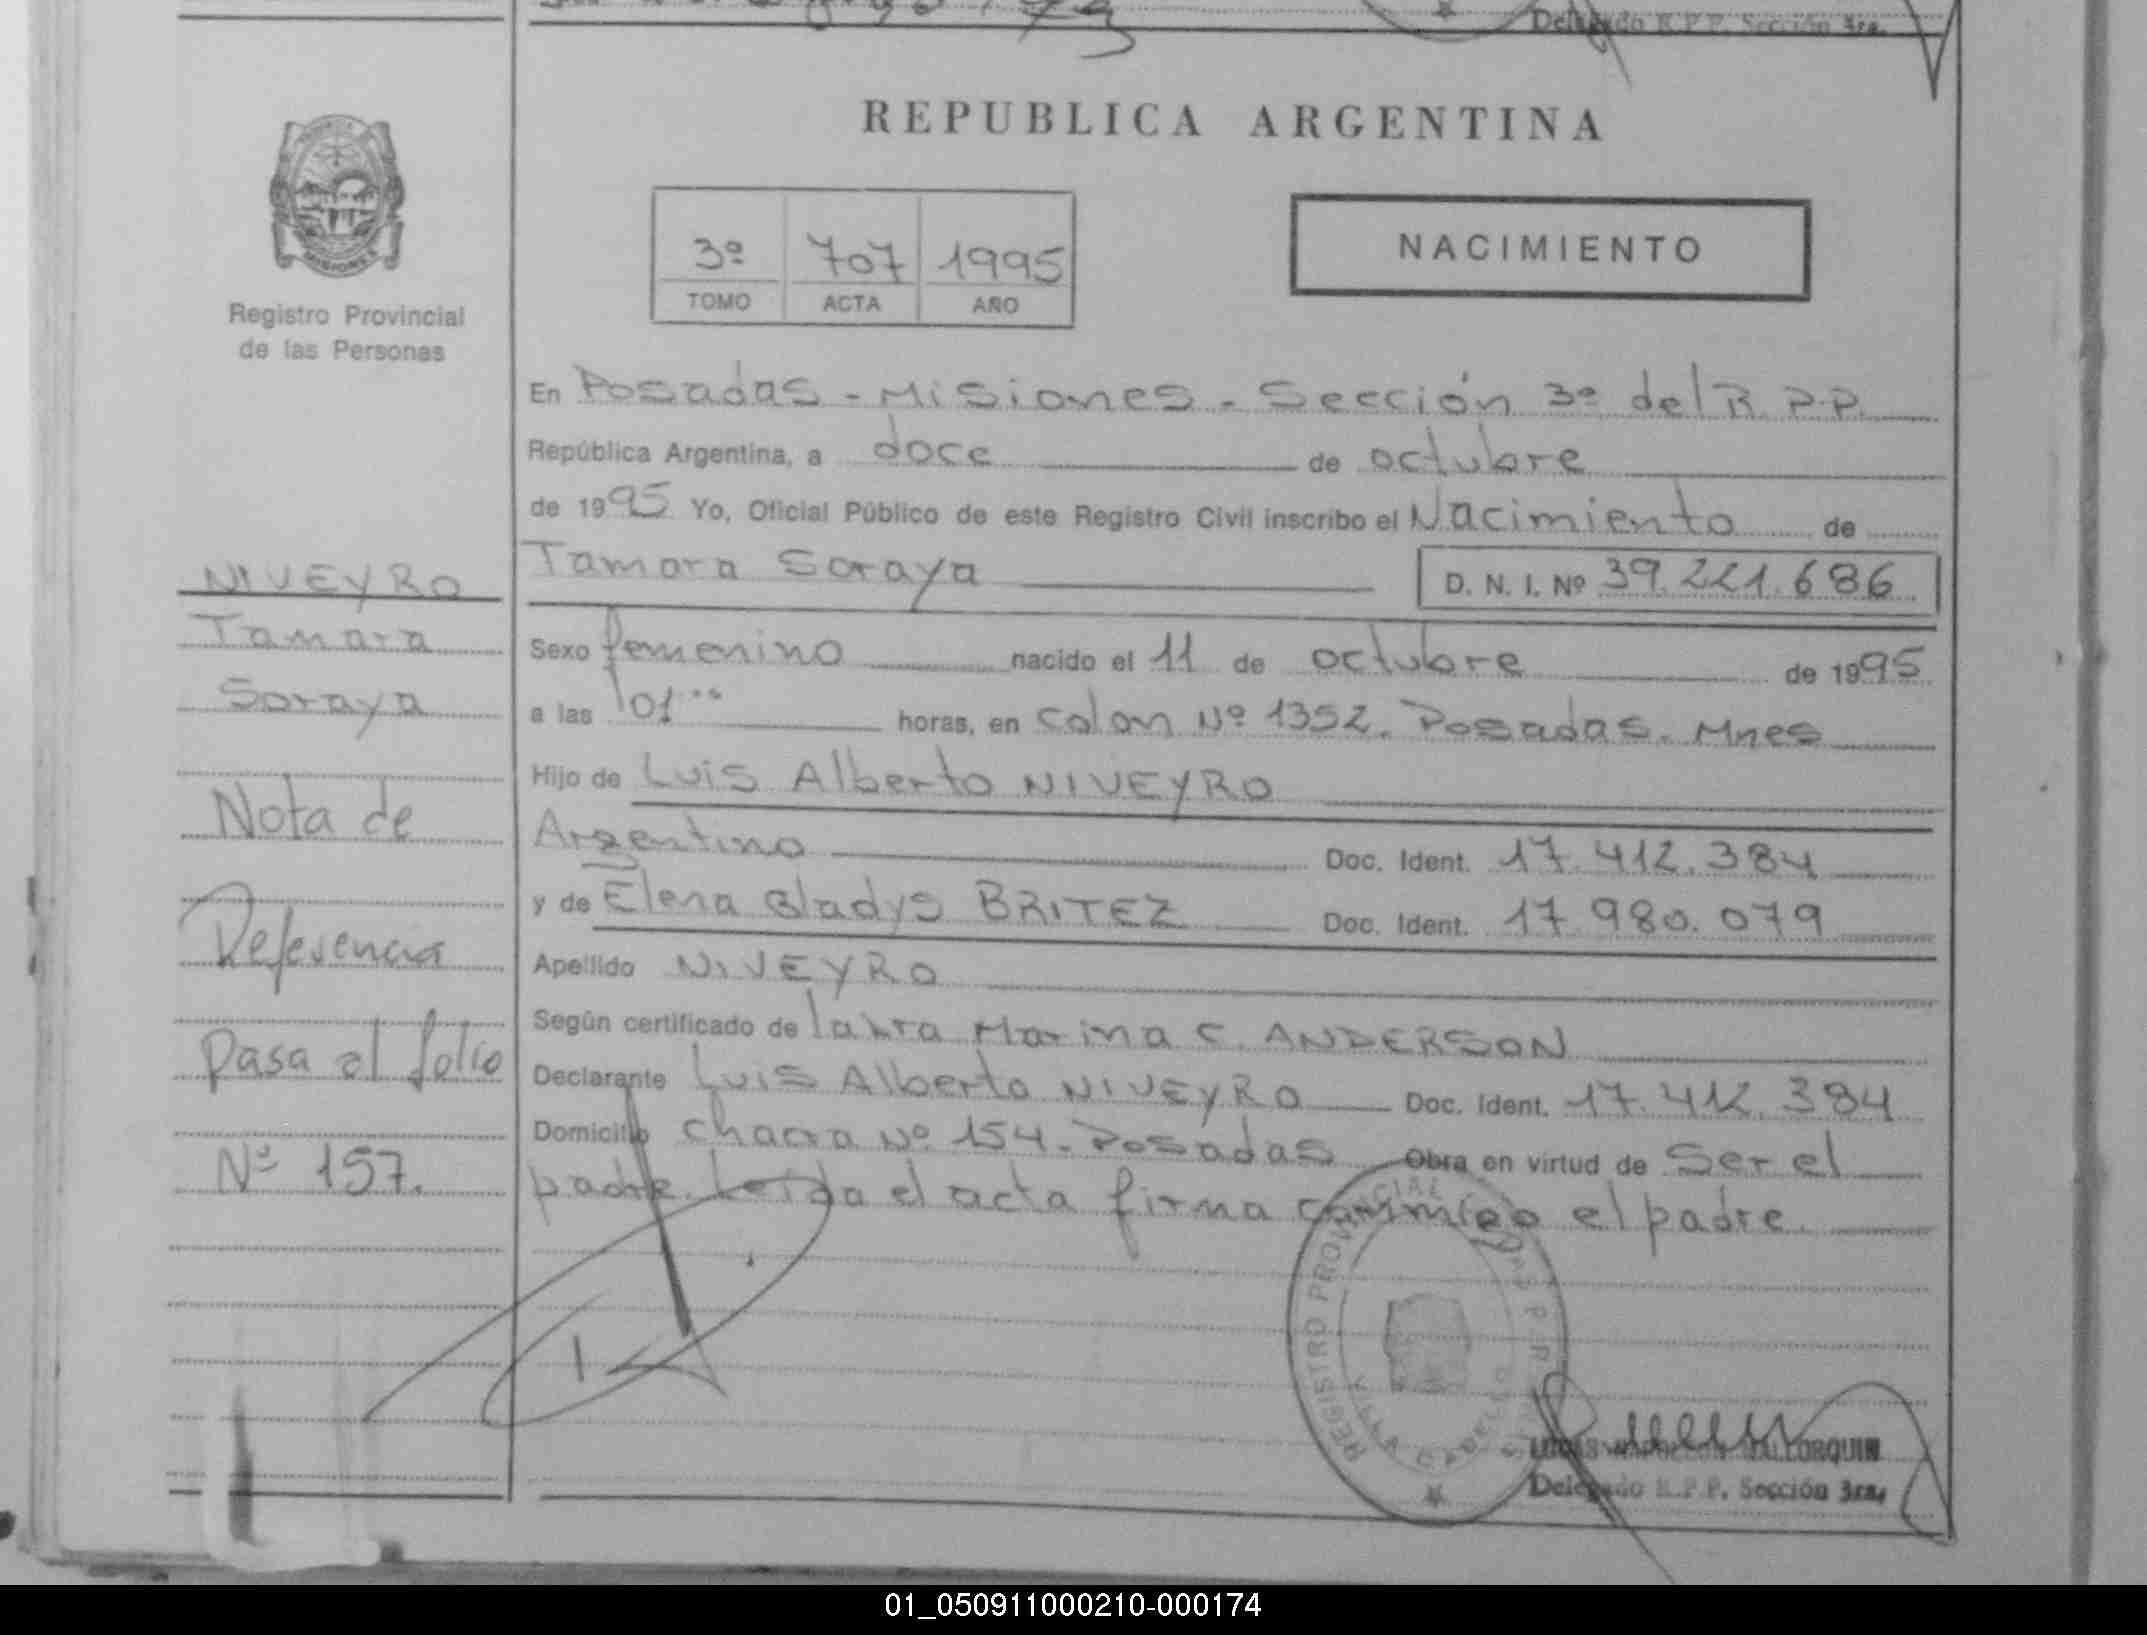 Delegado R.P.P. Sección 3ra.
REPUBLICA ARGENTINA
MISIONES
Registro Provincial
de las Personas
3º 707 1995
TOMO ACTA AÑO
NACIMIENTO
En Posadas - Misiones - Sección 3º del R.P.P.
República Argentina, a doce de octubre
de 1995 Yo, Oficial Público de este Registro Civil inscribo el Nacimiento de
Tamara Soraya D. N. I. Nº 39.221.686
Sexo femenino nacido el 11 de octubre de 1995
a las 01 horas, en Colon Nº 1352. Posadas. Mnes
Hijo de Luis Alberto NIVEYRO
Argentino Doc. Ident. 17.412.384
y de Elena Gladys BRITEZ Doc. Ident. 17.980.079
Apellido NIVEYRO
Según certificado de Marina C. ANDERSON
Declarante Luis Alberto NIVEYRO Doc. Ident. 17.412.384
Domicilio chacra Nº 154. Posadas Obra en virtud de Ser el
padre. Leída el acta firma conmigo el padre.
NIVEYRO
Tamara
Soraya
Nota de
Referencia
Pasa al folio
Nº 157.
REGISTRO PROVINCIAL
Delegado R.P.P. Sección 3ra.
01_050911000210-000174